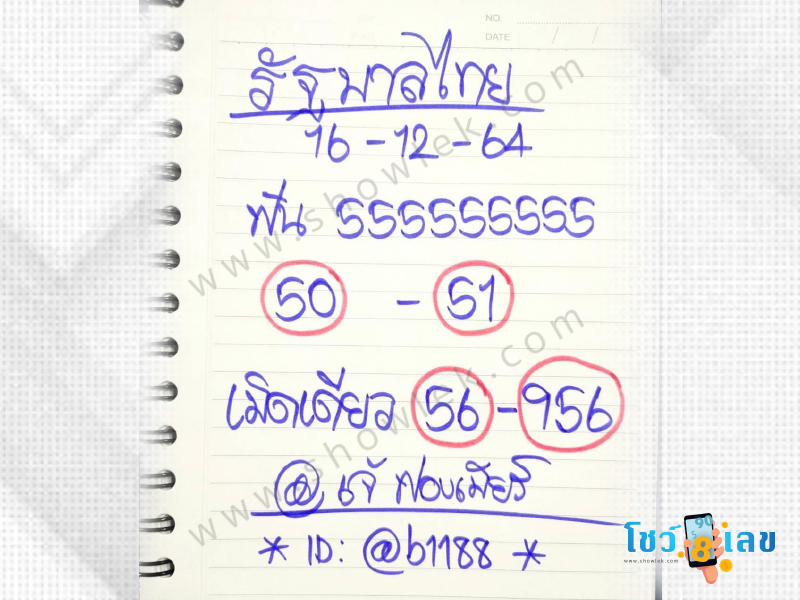 NO.
DATE / /
รัฐบาลไทย
16-12-64
ฟัน 555555555
50 - 51
เม็ดเดียว 56-956
@ เจ๊ ฟองเบียร์
* ID: @b1188 *
www.showlek.com
www.showlek.com
90
5
8
โชว์เลข
www.showlek.com